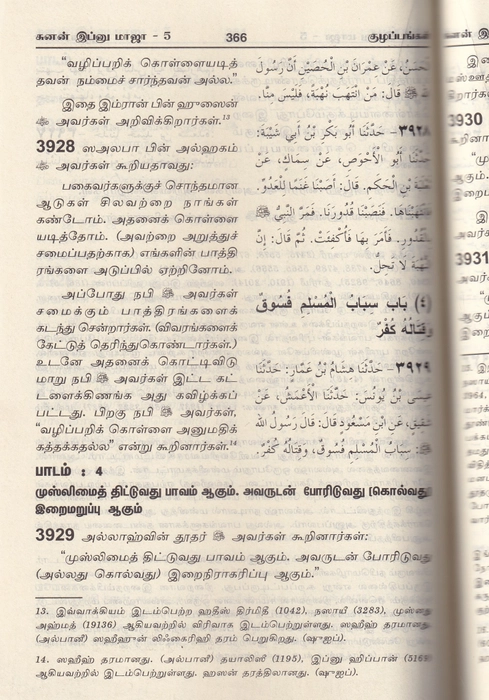 சுனன் இப்னு மாஜா - 5
366
குழப்பங்கள்
"வழிப்பறிக் கொள்ளையடித்
தவன் நம்மைச் சார்ந்தவன் அல்ல."
இதை இம்ரான் பின் ஹுஸைன்
ﷺ அவர்கள் அறிவிக்கிறார்கள்.13
3928 ஸஅலபா பின் அல்ஹகம்
ﷺ அவர்கள் கூறியதாவது:
பகைவர்களுக்குச் சொந்தமான
ஆடுகள் சிலவற்றை நாங்கள்
கண்டோம். அதனைக் கொள்ளை
யடித்தோம். (அவற்றை அறுத்துச்
சமைப்பதற்காக) எங்களின் பாத்தி
ரங்களை அடுப்பில் ஏற்றினோம்.
அப்போது நபி ﷺ அவர்கள்
சமைக்கும் பாத்திரங்களைக்
கடந்து சென்றார்கள். (விவரங்களைக்
கேட்டுத் தெரிந்துகொண்டார்கள்.)
உடனே அதனைக் கொட்டிவிடு
மாறு நபி ﷺ அவர்கள் இட்ட கட்
டளைக்கிணங்க அது கவிழ்க்கப்
பட்டது. பிறகு நபி ﷺ அவர்கள்,
"வழிப்பறிக் கொள்ளை அனுமதிக்
கத்தக்கதல்ல" என்று கூறினார்கள்.14
الْحَسَنُ، عَنْ عِمْرَانَ بْنِ الْحُصَيْنِ أَنَّ رَسُولَ
ﷺ قَالَ: مَنِ انْتَهَبَ نُهْبَةً، فَلَيْسَ مِنَّا.
٣٩٢٨ - حَدَّثَنَا أَبُو بَكْرِ بْنُ أَبِي شَيْبَةَ:
حَدَّثَنَا أَبُو الْأَحْوَصِ، عَنْ سِمَاكٍ، عَنْ
بْنِ الْحَكَمِ. قَالَ: أَصَبْنَا غَنَمًا لِلْعَدُوِّ.
فَانْتَهَبْنَاهَا. فَنَصَبْنَا قُدُورَنَا. فَمَرَّ النَّبِيُّ ﷺ
بِالْقُدُورِ. فَأَمَرَ بِهَا فَأُكْفِئَتْ. ثُمَّ قَالَ: إِنَّ
النُّهْبَةَ لَا تَحِلُّ.
(٤) بَابٌ سِبَابُ الْمُسْلِمِ فُسُوقٌ
وَقِتَالُهُ كُفْرٌ
٣٩٢٩ - حَدَّثَنَا هِشَامُ بْنُ عَمَّارٍ: حَدَّثَنَا
عِيسَى بْنُ يُونُسَ: حَدَّثَنَا الْأَعْمَشُ، عَنْ
شَقِيقٍ، عَنِ ابْنِ مَسْعُودٍ قَالَ: قَالَ رَسُولُ اللهِ
ﷺ: سِبَابُ الْمُسْلِمِ فُسُوقٌ، وَقِتَالُهُ كُفْرٌ.
பாடம் : 4
முஸ்லிமைத் திட்டுவது பாவம் ஆகும். அவருடன் போரிடுவது (கொல்வது)
இறைமறுப்பு ஆகும்
3929 அல்லாஹ்வின் தூதர் ﷺ அவர்கள் கூறினார்கள்:
"முஸ்லிமைத் திட்டுவது பாவம் ஆகும். அவருடன் போரிடுவது
(அல்லது கொல்வது) இறைநிராகரிப்பு ஆகும்."
13. இவ்வாக்கியம் இடம்பெற்ற ஹதீஸ் திர்மிதீ (1042), நஸாயீ (3283), முஸ்னது
அஹ்மத் (19136) ஆகியவற்றில் விரிவாக இடம்பெற்றுள்ளது. ஸஹீஹ் தரமானது
(அல்பானீ) ஸஹீஹுன் லிஃகைரிஹி தரம் பெறுகிறது. (ஷுஐப்).
14. ஸஹீஹ் தரமானது. (அல்பானீ) தயாலிஸீ (1195), இப்னு ஹிப்பான் (5169)
ஆகியவற்றில் இடம்பெற்றுள்ளது. ஹஸன் தரத்திலானது. (ஷுஐப்).
3930
3931